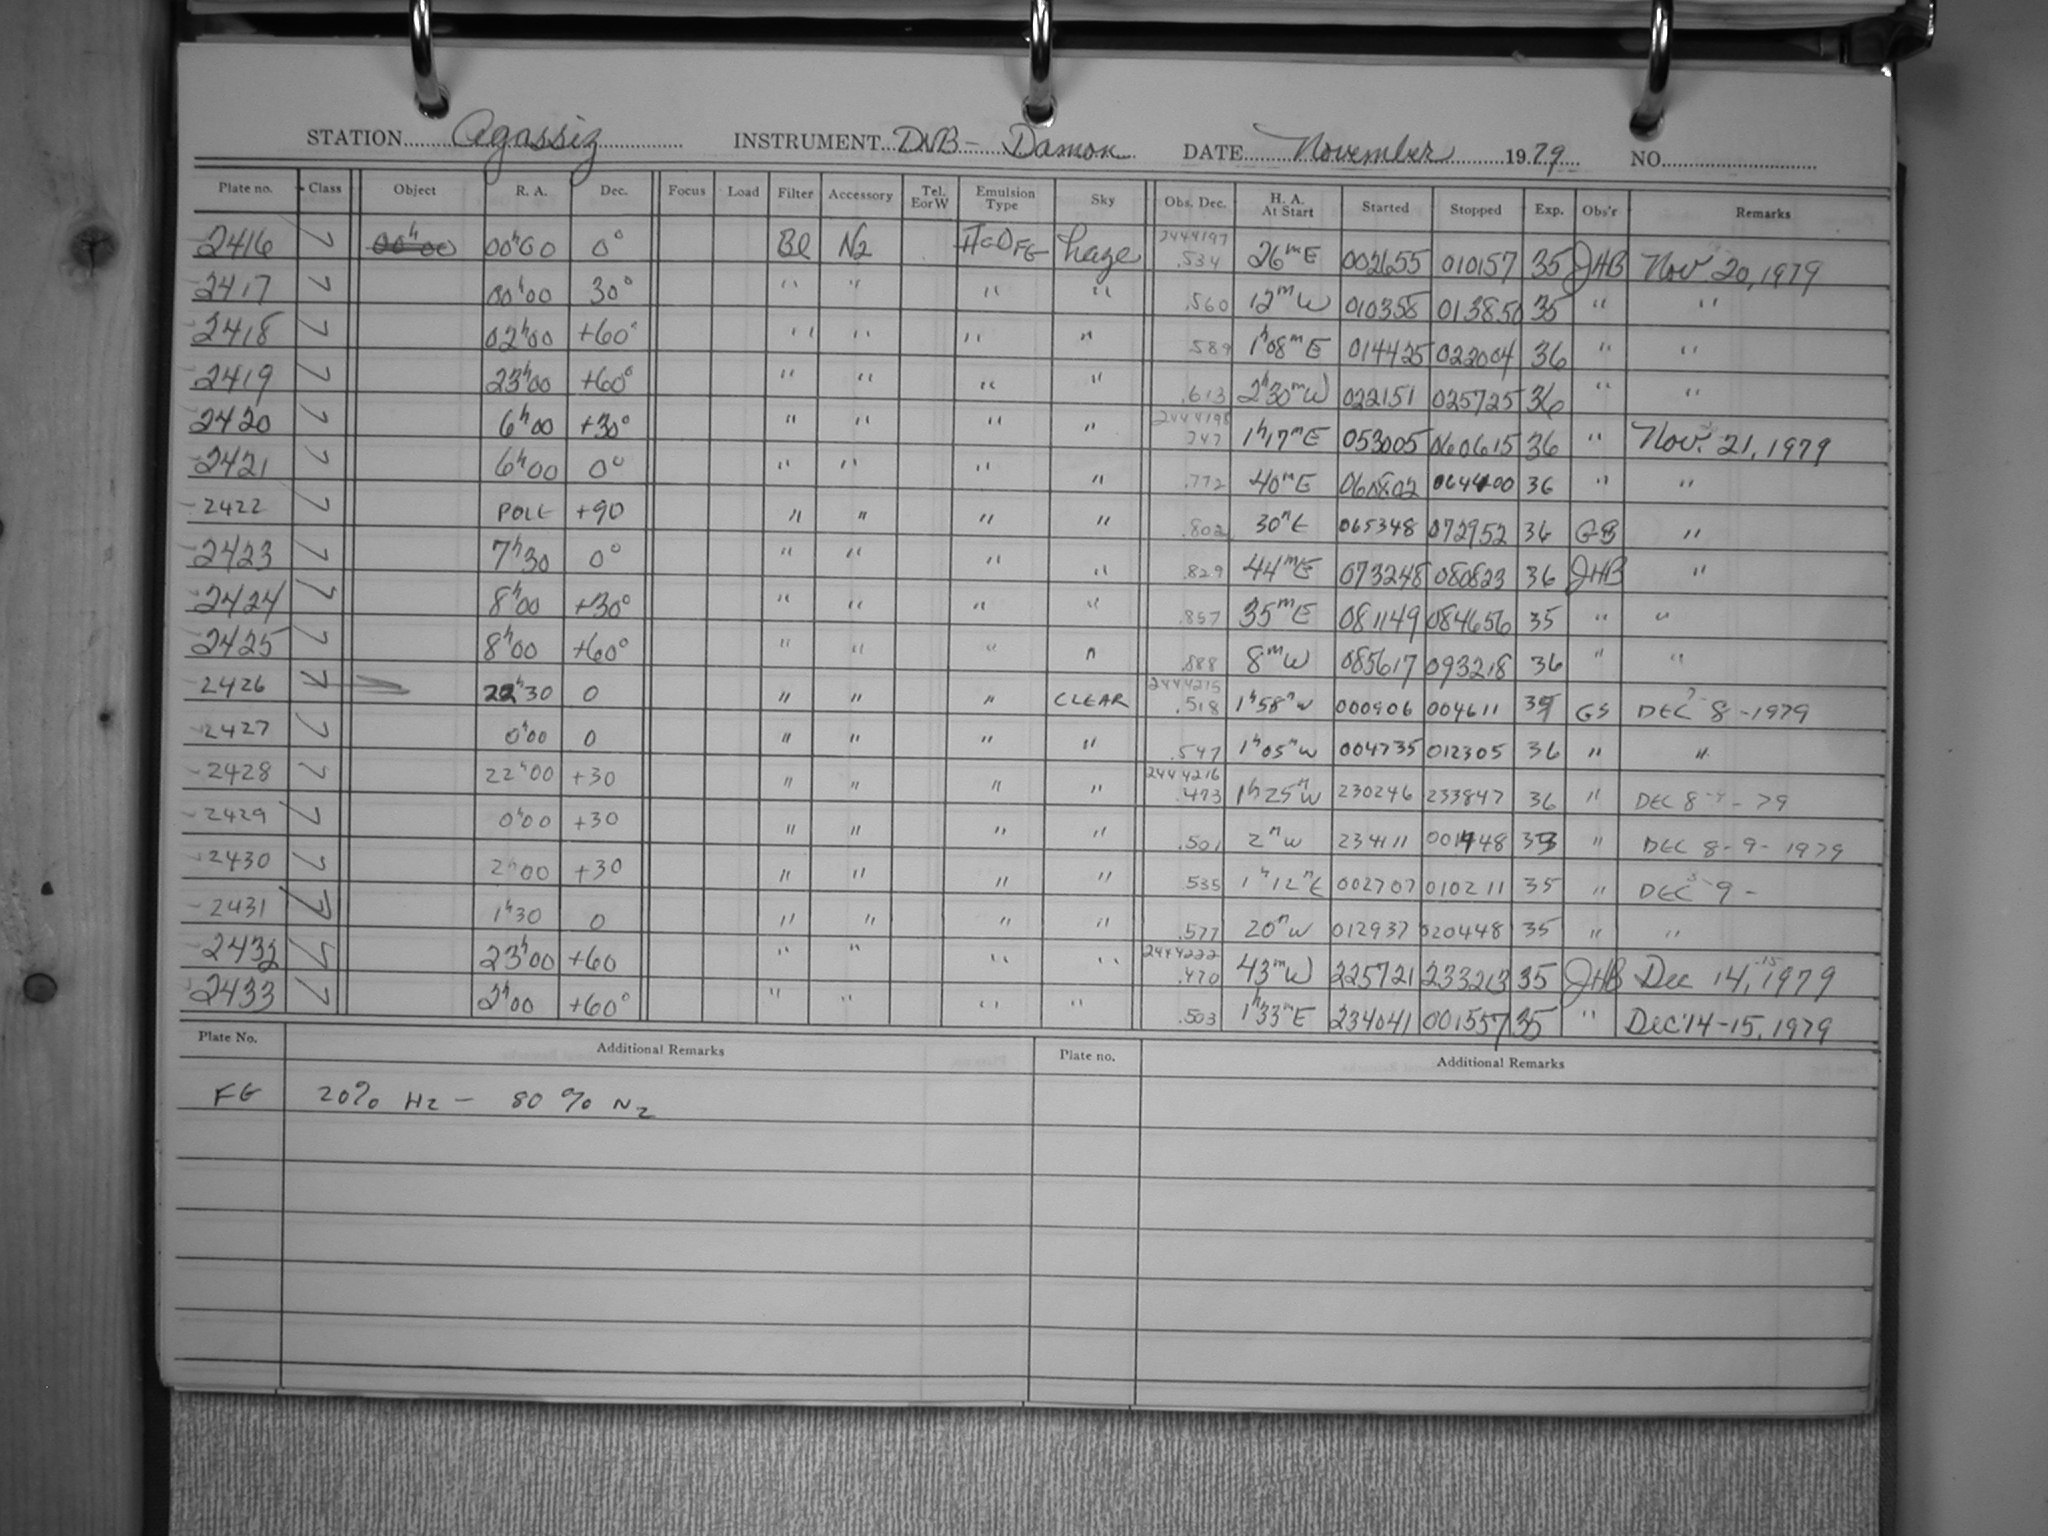 STATION Agassiz INSTRUMENT DNB - Damon DATE November 1979 NO.
Plate no. Class Object R. A. Dec. Focus Load Filter Accessory Tel. E or W Emulsion Type Sky Obs. Dec. H. A. At Start Started Stopped Exp. Obs'r Remarks
2416 7 00ʰ00 0° Bl N2 IIaO FG haze 2444197 .534 26ᵐE 002655 010157 35 JHB Nov. 20, 1979
2417 7 00ʰ00 30° " " " " .560 12ᵐW 010358 013850 35 " "
2418 7 02ʰ00 +60° " " " " .589 1ʰ08ᵐE 014425 022004 36 " "
2419 7 23ʰ00 +60° " " " " .613 2ʰ30ᵐW 022151 025725 36 " "
2420 7 6ʰ00 +30° " " " " 2444198 .747 1ʰ17ᵐE 053005 060615 36 " Nov. 21, 1979
2421 7 6ʰ00 0° " " " " .772 40ᵐE 060802 064400 36 " "
2422 7 POLE +90 " " " " .802 30ᵐE 065348 072952 36 GS "
2423 7 7ʰ30 0° " " " " .829 44ᵐE 073248 080823 36 JHB "
2424 7 8ʰ00 +30° " " " " .857 35ᵐE 081149 084656 35 " "
2425 7 8ʰ00 +60° " " " " .888 8ᵐW 085617 093218 36 " "
2426 7 22ʰ30 0 " " " CLEAR 2444215 .518 1ʰ58ᵐW 000906 004611 GS DEC 8 - 1979
2427 7 0ʰ00 0 " " " " .547 1ʰ05ᵐW 004735 012305 36 " "
2428 7 22ʰ00 +30 " " " " 2444216 .473 1ʰ25ᵐW 230246 233847 36 " DEC 8 - 79
2429 7 0ʰ00 +30 " " " " .501 2ᵐW 234111 001448 33 " DEC 8-9-1979
2430 7 2ʰ00 +30 " " " " .535 1ʰ12ᵐE 002707 010211 35 " DEC 9 -
2431 7 1ʰ30 0 " " " " .577 20ᵐW 012937 020448 35 " "
2432 7 23ʰ00 +60 " " " " 2444222 .470 43ᵐW 225721 233213 35 JHB Dec 14, 1979
2433 7 2ʰ00 +60° " " " " .503 1ʰ33ᵐE 234041 001557 35 " Dec 14-15, 1979
Plate No. Additional Remarks Plate no. Additional Remarks
FG 20% H2 - 80% N2